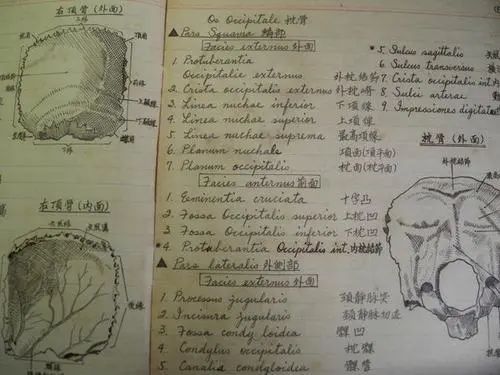 右頂骨 (外面)
上緣
頂結節
前緣
上顳線
下顳線
下緣
右頂骨 (内面)
後緣
Os Occipitale 枕骨
▲ Pars Squama 鱗部
Facies externus 外面
1. Protuberantia
Occipitalie externus 外枕結節
2. Crista occipitalis externus 外枕嵴
3. Linea nuchae inferior 下項線
4. Linea nuchae superior 上項線
5. Linea nuchae suprema 最高項線
6. Planum nuchale 項面(項平面)
7. Planum occipitalis 枕面(枕平面)
Facies anternus 前面
1. Eminentia cruciata 十字凸
2. Fossa Occipitalis superior 上枕凹
3. Fossa Occipitalis inferior 下枕凹
*4. Protuberantia Occipitalis int. 内枕結節
▲ Pars lateralis 外側部
Facies externus 外面
1. Processus jugularis 頚静脉突
2. Incisura jugularis 頚静脉切迹
3. Fossa condyloidea 髁凹
4. Condylus occipitalis 枕髁
5. Canalia condyloidea 髁管
*5. Sulcus sagittalis
6. Sulcus transversus
7. Crista occipitalis int.
8. Sulci arterae
9. Impressiones digitatae
枕骨 (外面)
外枕結節
枕髁